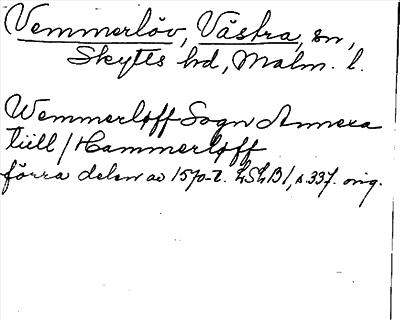 Vemmerlöv, Västra, sn,
Skytts hd, Malm. l.
Wemmerloff Sogn Annexa
tiill / Hammerloff
förra delen av 1570-t. LSLB1, s. 337. orig.